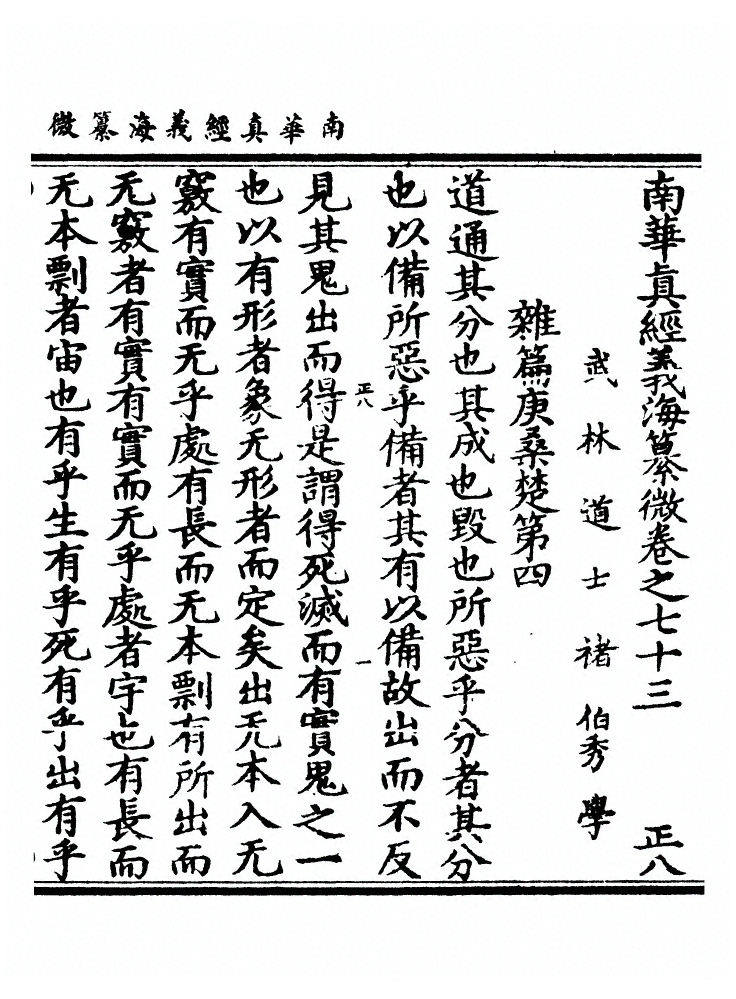 南華真經義海纂微
南華眞經義海纂微卷之七十三 正八
武林道士褚伯秀學
雜篇庚桑楚第四
道通其分也其成也毀也所惡乎分者其分
也以備所惡乎備者其有以備故出而不反
正八 一
見其鬼出而得是謂得死滅而有實鬼之一
也以有形者象无形者而定矣出无本入无
竅有實而无乎處有長而无本剽有所出而
无竅者有實有實而无乎處者宇也有長而
无本剽者宙也有乎生有乎死有乎出有乎